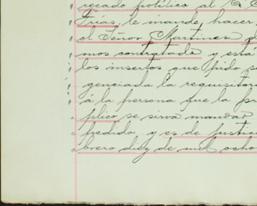 recado político al
Frías, le mande hacer
el Señor Martinez
mos contratada y está
los insertos que pido s
genciada la requisitor
á la persona que la pr
plico se sirva mandar
pedido, y es de justic
brero diez de mil ocho